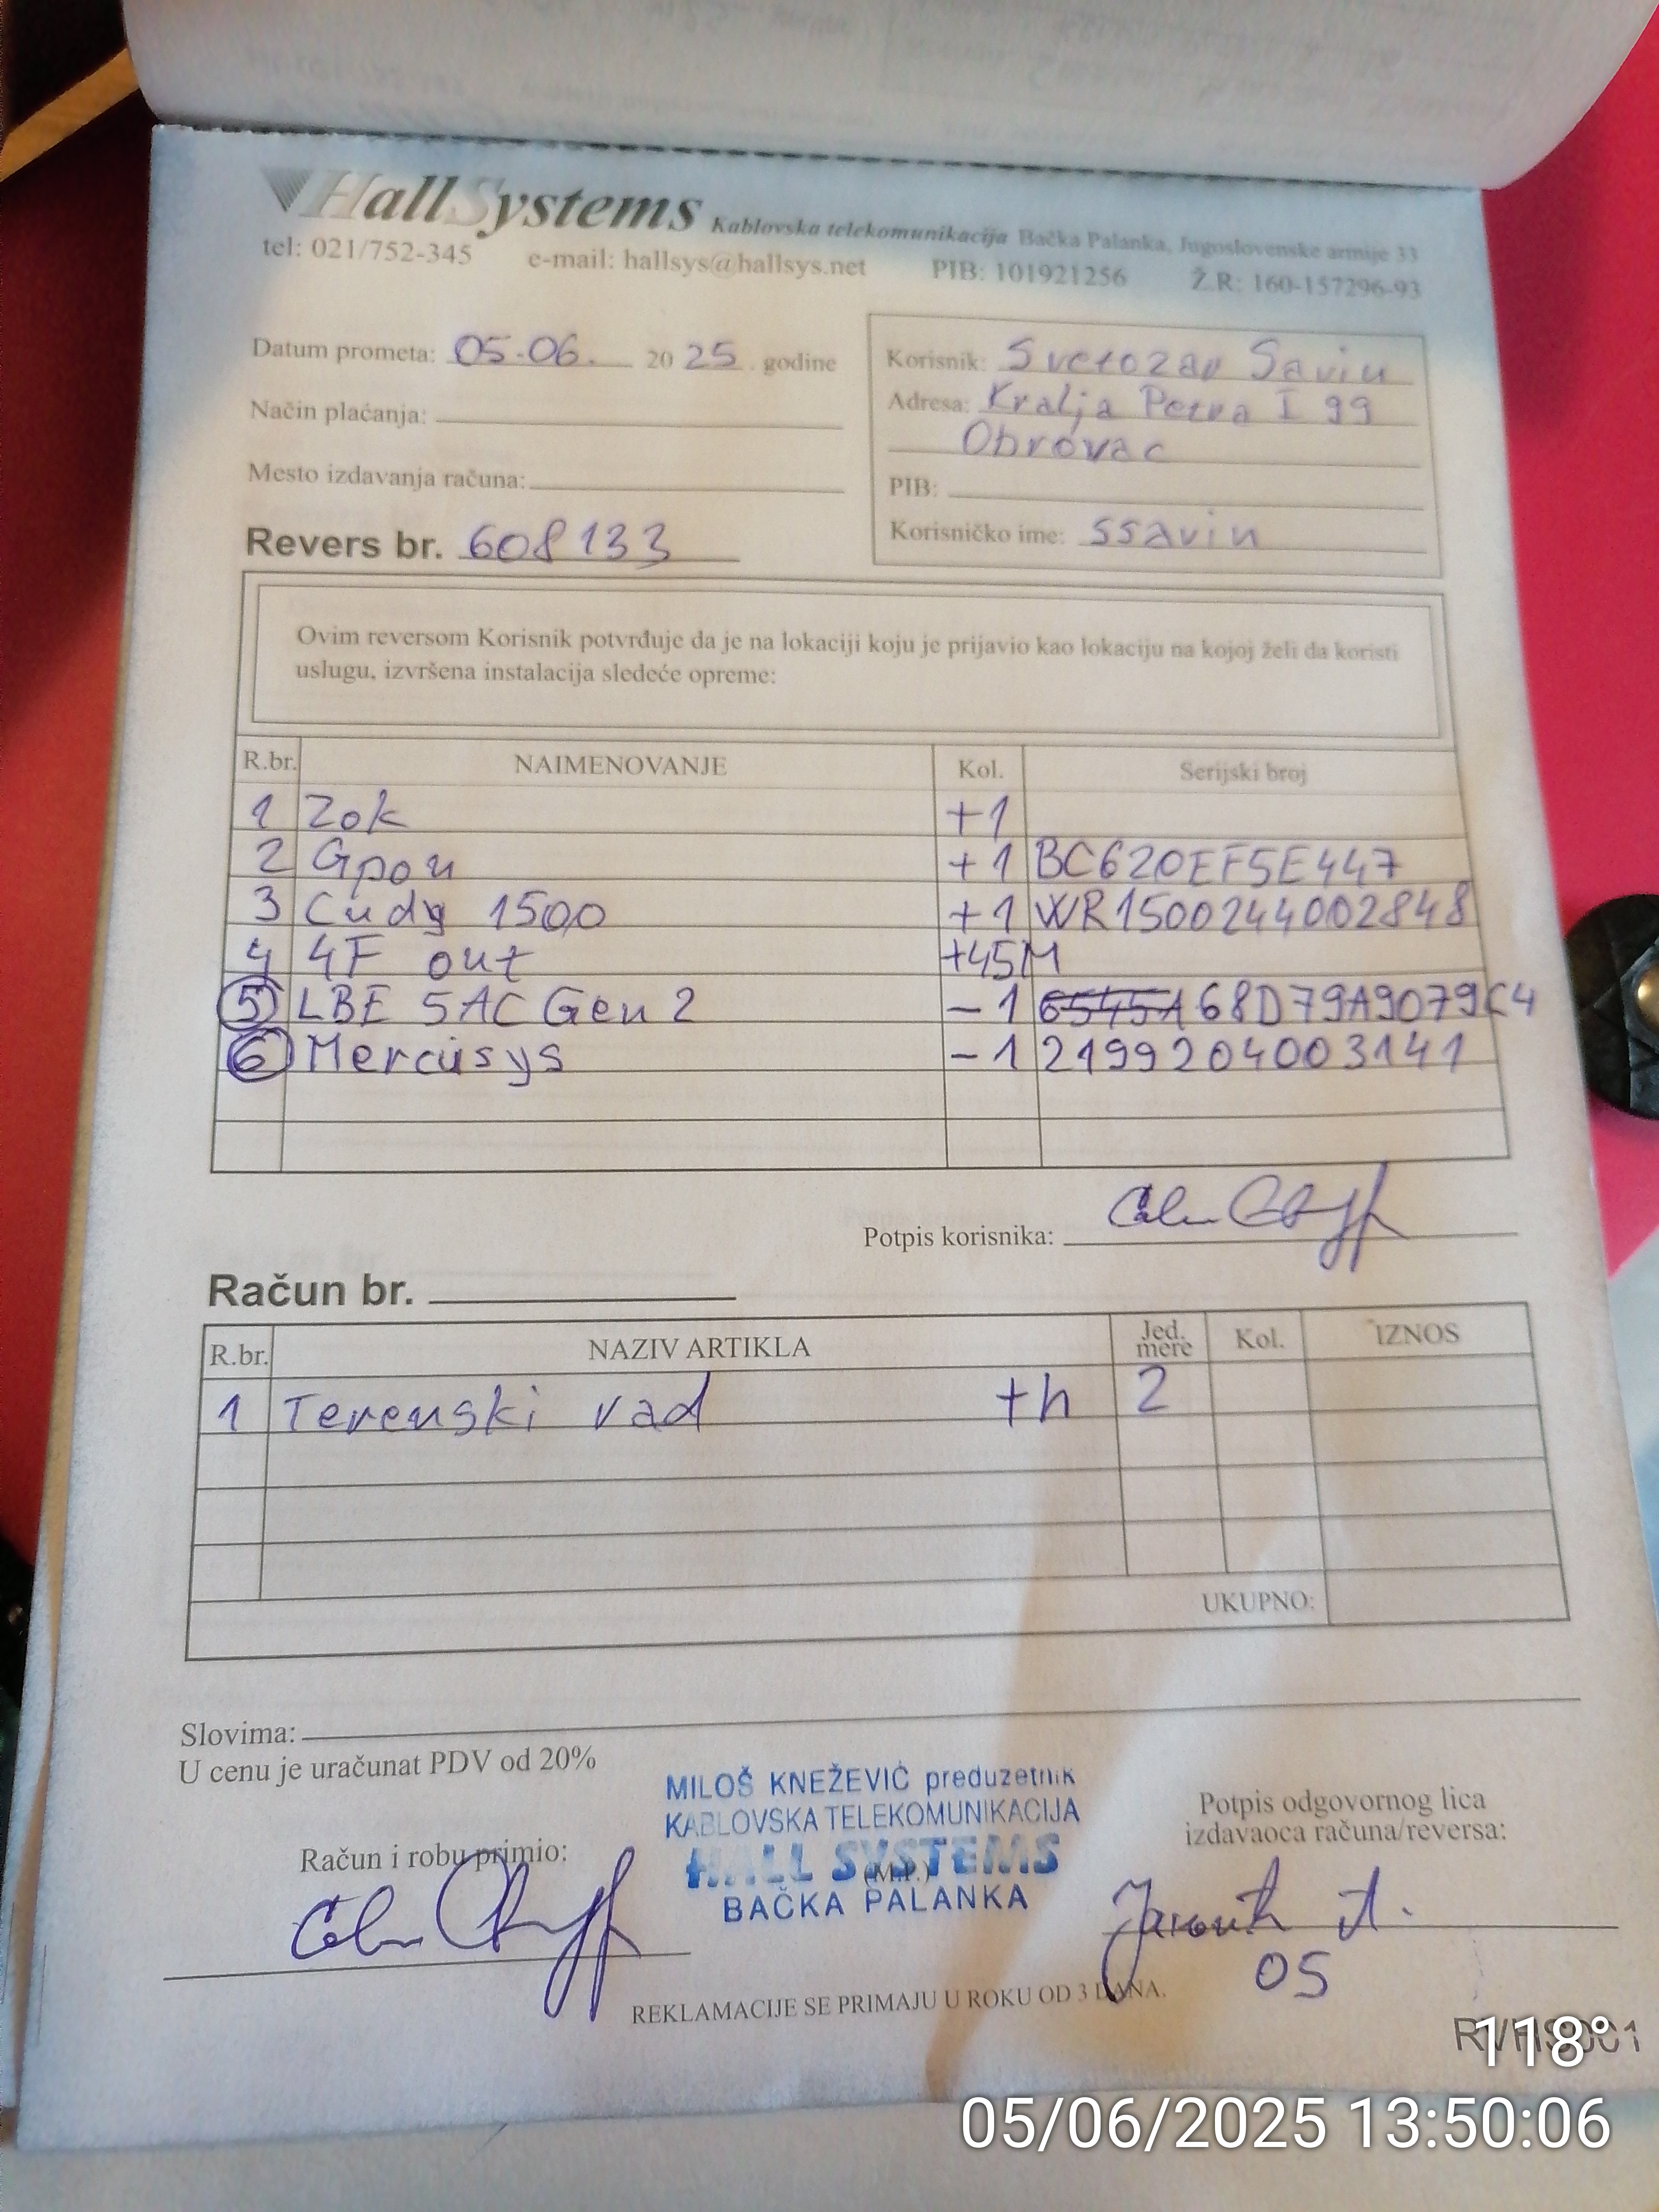 HallSystems Kablovska telekomunikacija Bačka Palanka, Jugoslovenske armije 33
tel: 021/752-345 e-mail: hallsys@hallsys.net PIB: 101921256 Ž.R: 160-157296-93
Datum prometa: 05-06. 2025. godine
Način plaćanja:
Mesto izdavanja računa:
Revers br. 608133
Korisnik: Svetozar Savin
Adresa: Kralja Petra I 99
Obrovac
PIB:
Korisničko ime: ssavin
Ovim reversom Korisnik potvrđuje da je na lokaciji koju je prijavio kao lokaciju na kojoj želi da koristi
uslugu, izvršena instalacija sledeće opreme:
R.br. NAIMENOVANJE Kol. Serijski broj
1 Zok +1
2 Gpon +1 BC620EF5E447
3 Cudy 1500 +1 WR1500244002848
4 4F out +45M
5 LBE 5AC Gen 2 -1 68D79A9079C4
6 Mercusys -1 2199204003141
Potpis korisnika:
Račun br.
R.br. NAZIV ARTIKLA Jed. mere Kol. IZNOS
1 Terenski rad +h 2
UKUPNO:
Slovima:
U cenu je uračunat PDV od 20%
MILOŠ KNEŽEVIĆ preduzetnik
KABLOVSKA TELEKOMUNIKACIJA
HALL SYSTEMS
(M.P.)
BAČKA PALANKA
Račun i robu primio:
Potpis odgovornog lica
izdavaoca računa/reversa:
05
REKLAMACIJE SE PRIMAJU U ROKU OD 3 DANA.
118°
05/06/2025 13:50:06